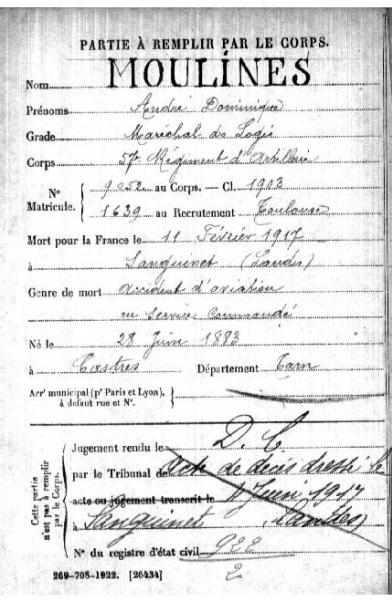 PARTIE À REMPLIR PAR LE CORPS.
Nom MOULINES
Prénoms André Dominique
Grade Maréchal des Logis
Corps 57e Régiment d'Artillerie
N° Matricule. 9252 au Corps. — Cl. 1903
1639 au Recrutement Toulouse
Mort pour la France le 11 Février 1917
à Sanguinet (Landes)
Genre de mort accident d'aviation
en service commandé
Né le 28 Juin 1883
à Castres Département Tarn
Arrt municipal (pr Paris et Lyon), à défaut rue et N°.
Cette partie n'est pas à remplir par le Corps.
Jugement rendu le D. C
par le Tribunal de Acte de décès dressé le
acte ou jugement transcrit le 1917
à Sanguinet (Landes)
N° du registre d'état civil 922
2
269-708-1922. [26434]